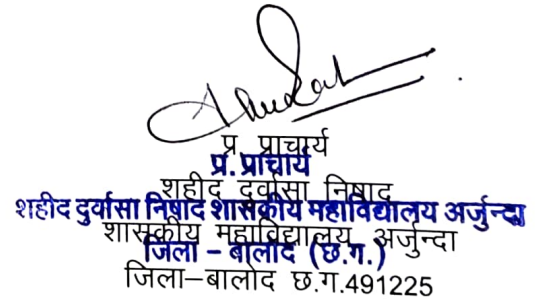 प्र. प्राचार्य
प्र. प्राचार्य
शहीद दुर्वासा निषाद
शहीद दुर्वासा निषाद शासकीय महाविद्यालय अर्जुन्दा
शासकीय महाविद्यालय, अर्जुन्दा
जिला - बालोद (छ.ग.)
जिला–बालोद छ.ग.491225